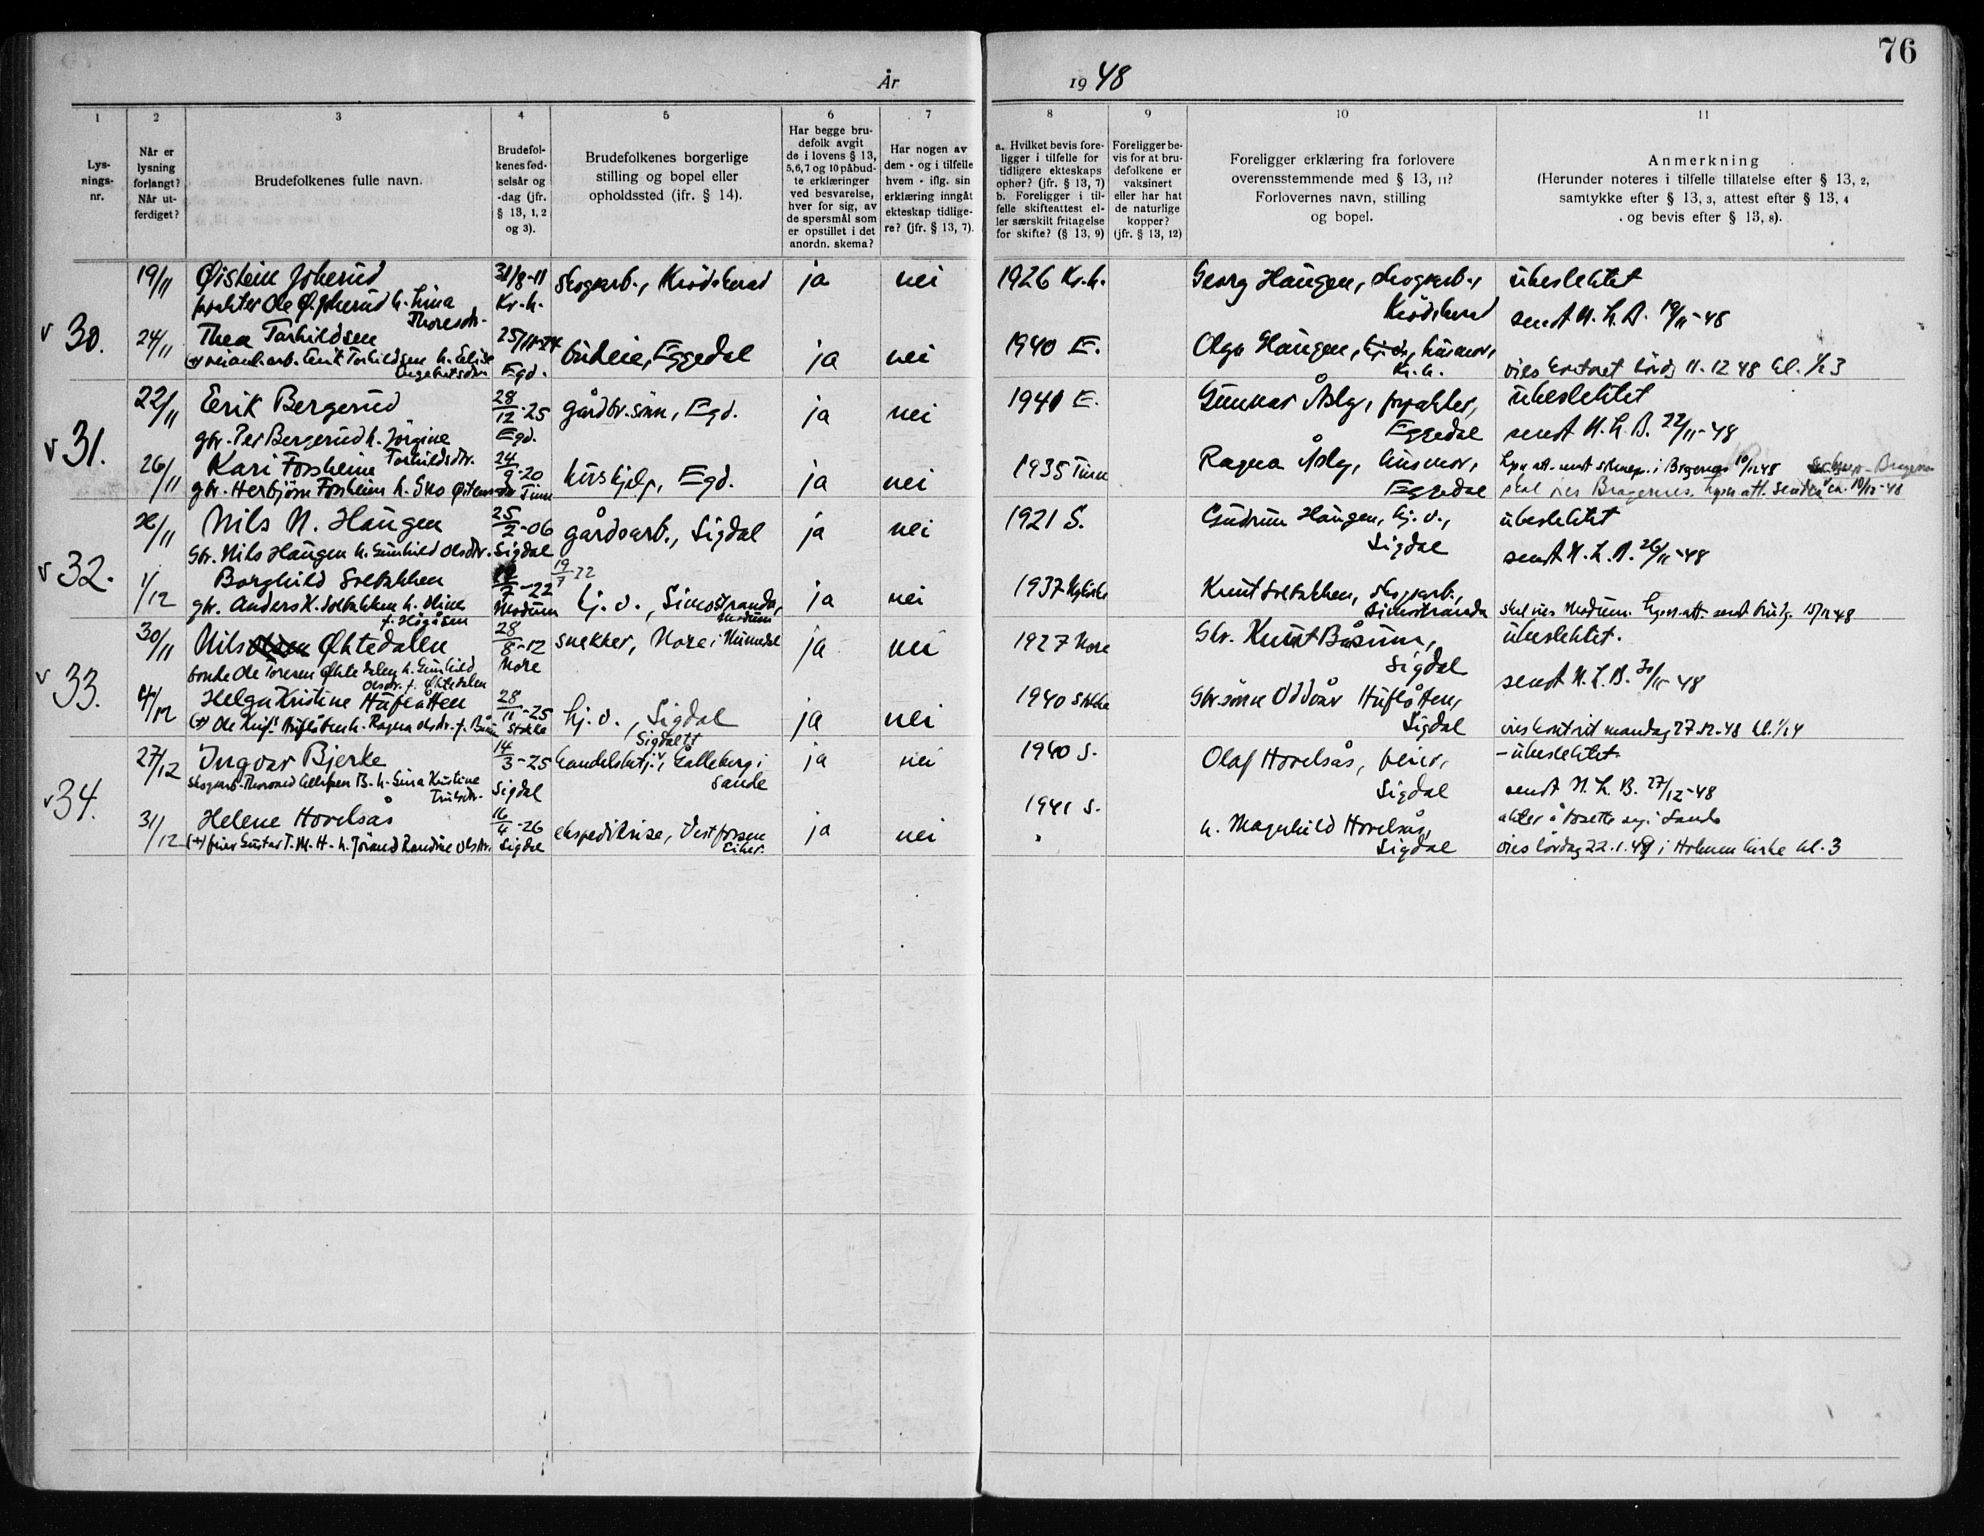 76
År 1948
1
2
3
4
5
6
7
8
9
10
11
Lys-
nings-
nr.
Når er
lysning
forlangt?
Når ut-
ferdiget?
Brudefolkenes fulle navn.
Brudefol-
kenes fød-
selsår og
-dag (jfr.
§ 13, 1, 2
og 3).
Brudefolkenes borgerlige
stilling og bopel eller
opholdssted (ifr. § 14).
Har begge bru-
defolk avgit
de i lovens § 13,
5,6,7 og 10 påbud-
te erklæringer
ved besvarelse,
hver for sig, av
de spørsmål som
er opstillet i det
anordn. skema?
Har nogen av
dem - og i tilfelle
hvem - iflg. sin
erklæring inngåt
ekteskap tidlige-
re? (jfr. § 13, 7).
a. Hvilket bevis fore-
ligger i tilfelle for
tidligere ekteskaps
ophør? (jfr. § 13, 7)
b. Foreligger i til-
felle skifteattest el-
ler særskilt fritagelse
for skifte? (§ 13, 9)
Foreligger be-
vis for at bru-
defolkene er
vaksinert
eller har hat
de naturlige
kopper?
(jfr. § 13, 12)
Foreligger erklæring fra forlovere
overensstemmende med § 13, 11?
Forlovernes navn, stilling
og bopel.
Anmerkning
(Herunder noteres i tilfelle tillatelse efter § 13, 2,
samtykke efter § 13, 3, attest efter § 13, 4
og bevis efter § 13, 8).
v 30.
19/11 Øistein Joherud 31/8-11 skogarb., Krødsherad ja nei 1926 Kr.h. Georg Haugen, skogarb., ubeslektet
forpakter Ole Ø. Joherud h. Lina Kr.h. Krødsherad sendt N.L.B. 19/11-48
Thoresdr.
24/11 Thea Torhildsen 25/11-24 budeie, Eggedal ja nei 1940 E. Olga Haugen, husmor,
veiarb.arb. Torhildsen h. Egd. Kr.h. vies kontoret lørdg 11.12 48 kl. 1/2 3
Engebretsdr.
v 31.
22/11 Erik Bergerud 28/12-25 gårdbr.sønn, Egd. ja nei 1941 E. Gunnar Åsly, forpakter, ubeslektet
gbr. Per Bergerud h. Jørgine Egd. Eggedal sendt N.L.B. 22/11-48
Torhildsdr.
26/11 Kari Forsheim 24/9-20 hushjelp, Egd. ja nei 1935 Tinn Ragna Åsly, husmor, lysn.att. sendt i Bragernes 10/12 48
gbr. Herbjørn Forsheim h. Tinn Eggedal skal vies Bragernes. lysn att. sendes ca. 10/12-48
v 32.
26/11 Nils N. Haugen 25/2-06 gårdsarb., Sigdal ja nei 1921 S. Gudrun Haugen, hj.v., ubeslektet
Gbr. Nils Haugen h. Gunhild Olsdtr. Sigdal Sigdal sendt N.L.B. 26/11-48
1/12 Borghild Solbakken 19/7-22 19/7 22 hj.v., Simostranda, ja nei 1937 Knut Solbakken, skogarb.,
gbr. Anders K. Solbakken h. Oline Modum Modum Simostranda skal vies Modum. lysn-att. sendt brudg. 15/12 48
f. Høgåsen
v 33.
30/11 Nils Øktedalen 28/8-12 snekker, Nore i Numedal ja nei 1927 Nore Gbr. Knut Båsum, ubeslektet.
bonde Ole Toresen Øktedalen h. Gunhild Nore Sigdal sendt N.L.B. 30/11 48
Olsdr. f. Øktedalen
4/12 Helga Kristine Hufløtten 28/11-25 hj.v., Sigdal ja nei 1940 Stokke Gbr.sønn Oddvar Hufløtten,
Ole Hufløtten h. Ragna Olsdr. f. Stokke Sigdal vies kontoret mandag 27.12-48 kl. 1/2 4
v 34.
27/12 Ingvar Bjerke 14/3-25 handelsbetj., Galleberg i ja nei 1940 S. Olaf Hovelsås, feier, - ubeslektet.
skogarb. Thorvald B. h. Gina Kristine Sigdal Sande Sigdal sendt N.L.B. 27/12-48
31/12 Helene Hovelsås 16/4-26 ekspeditrise, Vestfossen ja nei 1941 S. h. Magnhild Hovelsås, akter å bosette seg i Sande
feier Gustav T. M. H. h. Randine Olsdtr. Sigdal Eiker. Sigdal vies lørdag 22.1.49 i Holmen kirke kl. 3